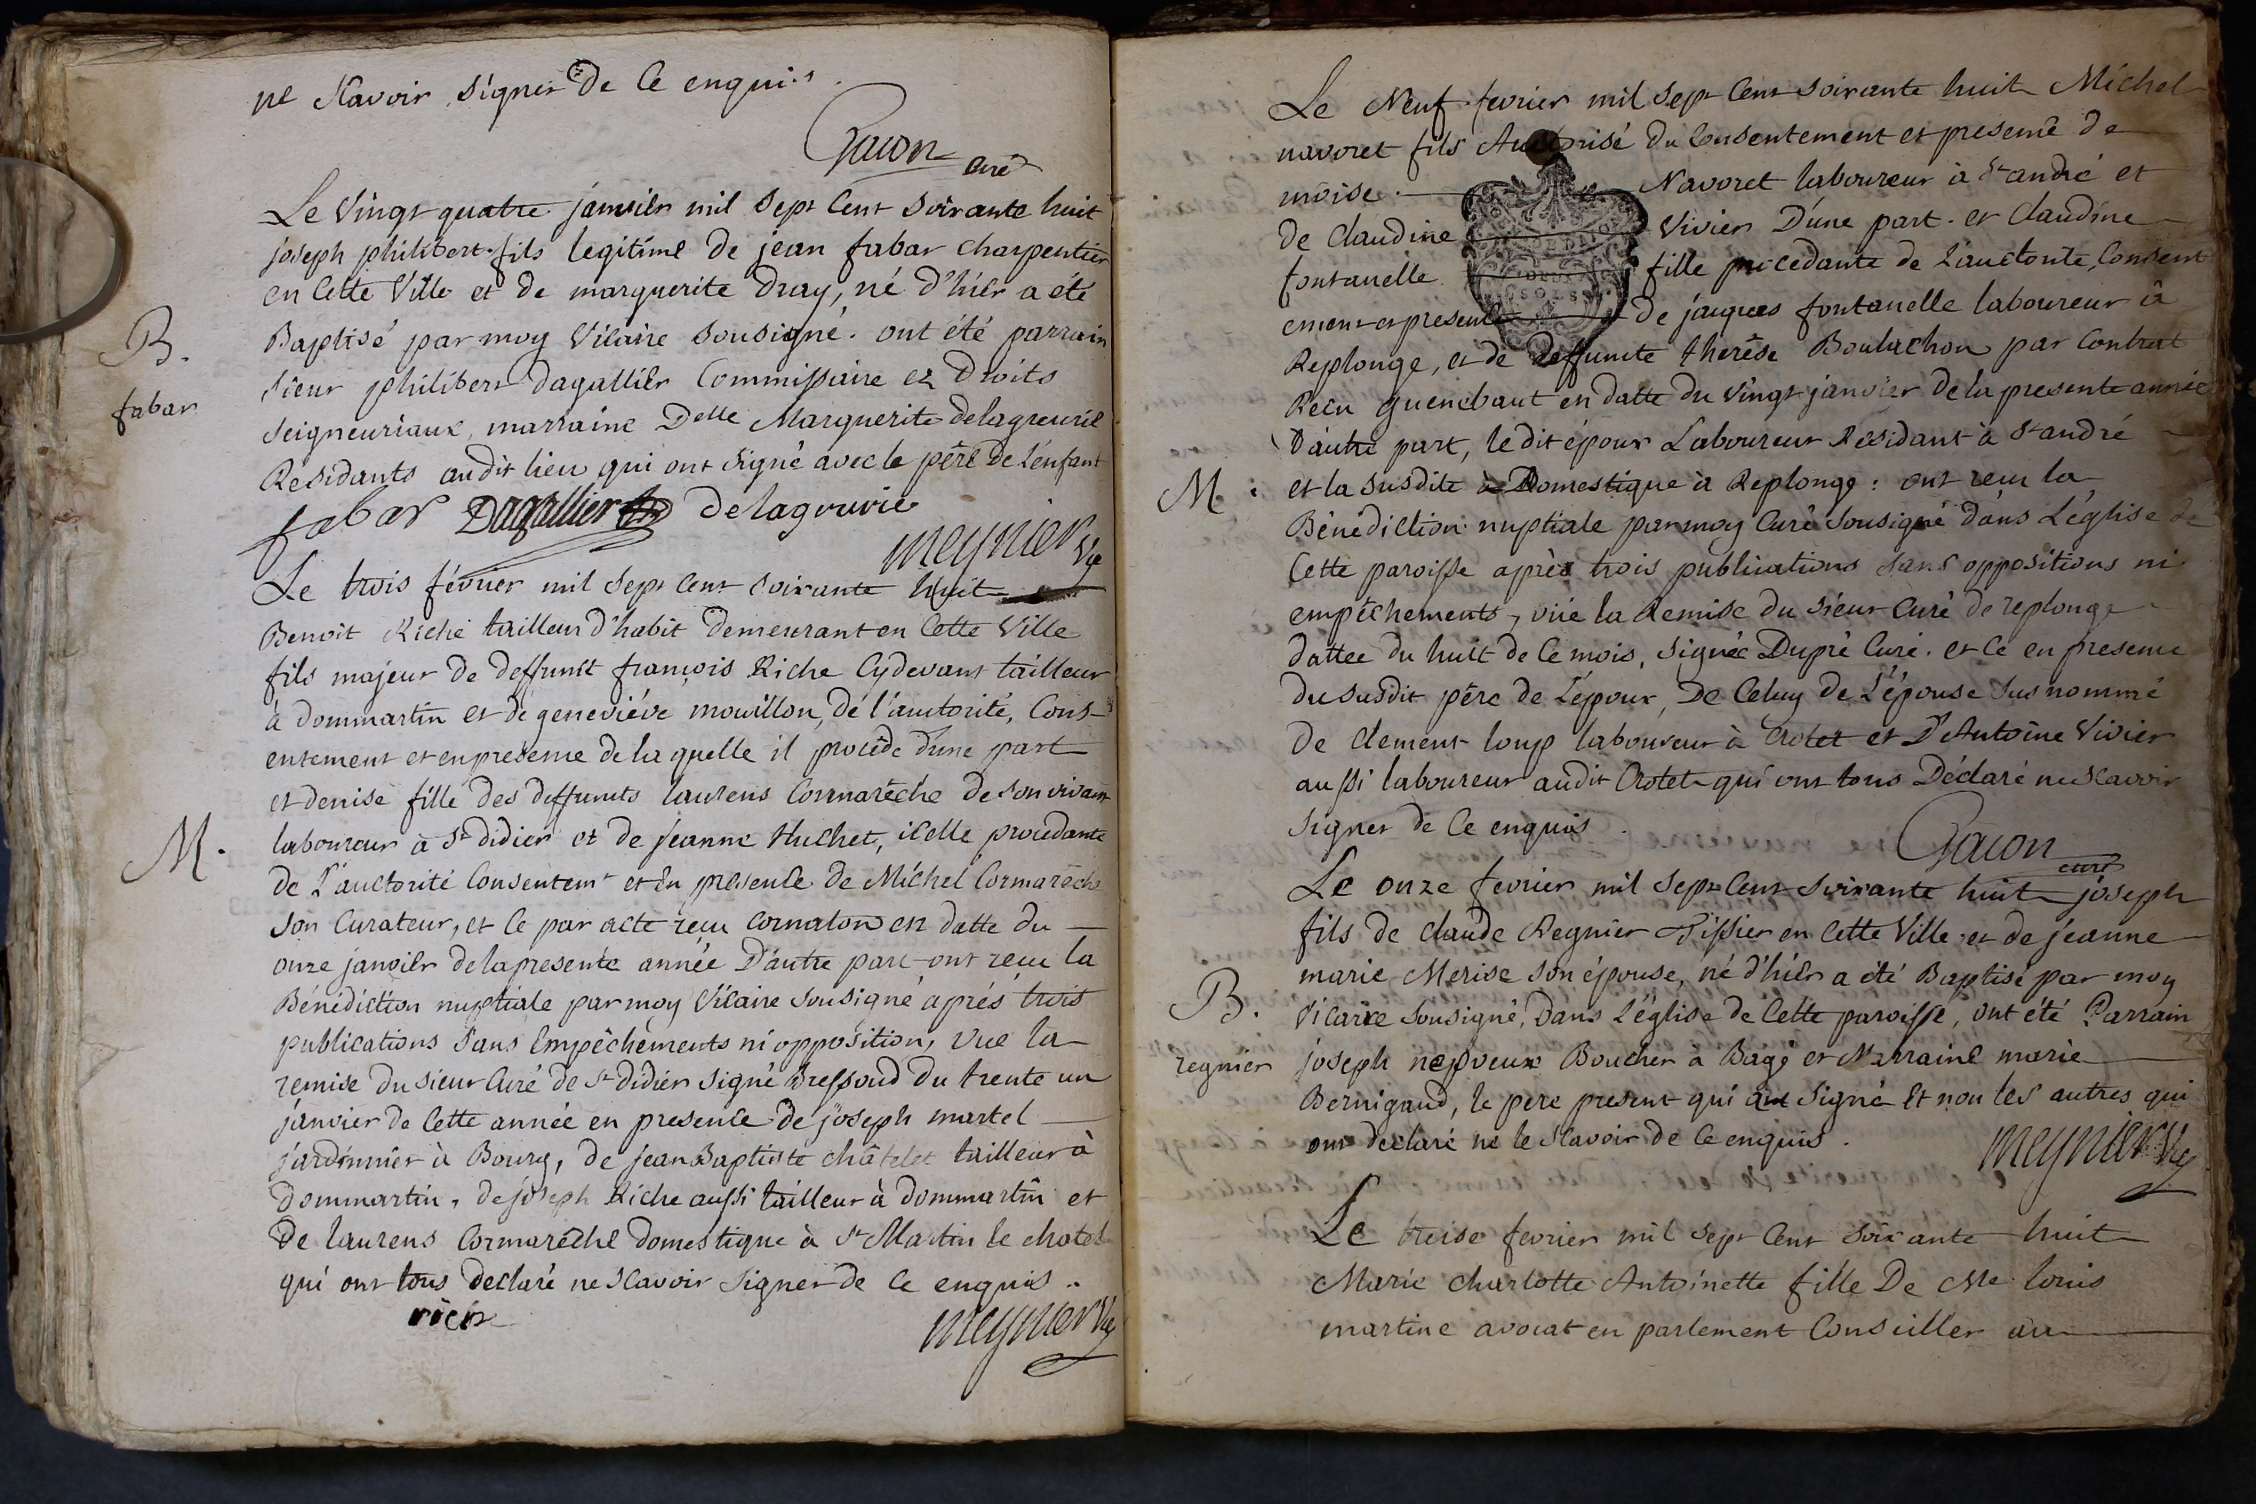 ne scavoir signer de ce enquis.
Gacon curé
Le vingt quatre janvier mil sept cent soixante huit
joseph philibert fils legitime de jean fabar charpentier
en cette Ville et de marguerite Dray, né d'hier a été
B.
Baptisé par moy vicaire sousigné. ont été parrain
sieur philibert Dagallier Commissaire ez Droits
fabar
seigneuriaux, marraine Delle Marguerite delagreurie
Residants audit lieu qui ont signé avec le père de l'enfant
fabar Dagallier delagruvie
meynier vic
Le trois février mil sept cent soixante huit
Benoit Riche tailleur d'habit demeurant en cette Ville
fils majeur de deffunct françois Riche cydevant tailleur
à dommartin et de geneviéve mouillon, de l'autorité, Cons-
entement et en presence de la quelle il procède d'une part
et denise fille des deffuncts laurens Cormarèche de son vivant
M.
laboureur à St didier et de jeanne Huchet, icelle procedante
de L'auctorité Consentemt et en presence de Michel Cormarèche
son Curateur, et ce par acte reçu cornaton en datte du
onze janvier de la presente année D'autre part ont reçu la
Bénédiction nuptiale par moy Vicaire sousigné aprés trois
publications sans Empêchements ni opposition, vue la
remise du sieur Curé de St didier signé Bressoud du trente un
janvier de cette année en presence de joseph martel
jardinnier à Bourg, de jean Baptiste châtelet tailleur à
dommartin, de joseph Riche aussi tailleur à dommartin et
De laurens Cormarèche domestique à St Martin le chatel
qui ont tous declaré ne scavoir signer de ce enquis.
meynier vic
Le Neuf fevrier mil sept cent soixante huit Michel
navoret fils Authorisé du consentement et presence de
moise Navoret laboureur à St andré et
de Claudine Vivier D'une part. et Claudine
fontanelle fille procedante de L'auctorité, Consent
ement et presence de jacques fontanelle laboureur à
Replonge, et de deffuncte therèse Bouluchon par contrat
Recu guenebaut en datte du vingt janvier de la presente année
D'autre part, le dit époux Laboureur Residant à St andré
M.
et la susdite Domestique à Replonge: ont reçu la
Bénédiction nuptiale par moy Curé sousigné dans L'église de
Cette paroisse après trois publications sans oppositions ni
empêchements, vüe la Remise du sieur Curé de replonge
dattee du huit de ce mois, signée Dupré Curé. et ce en presence
du susdit père de L'époux, De Celuy de L'épouse sus nommé
De clement loup laboureur à Crotet et D'Antoine Vivier
aussi laboureur audit Crotet qui ont tous Déclaré ne scavoir
signer de ce enquis.
Gacon curé
Le onze fevrier mil sept cent soixante huit joseph
fils de claude Regnier Tissier en cette Ville et de jeanne
marie Merise son épouse, né d'hier a été Baptisé par moy
B.
Vicaire sousigné, Dans L'église de cette paroisse, ont été Parrain
regnier
joseph nepveux Boucher à Bagé et Marraine marie
Bernigaud, le pere present qui a signé et non les autres qui
ont declaré ne le scavoir de ce enquis.
meynier vic
Le treise fevrier mil sept cent soixante huit
Marie charlotte Antoinette fille De Me louis
martine avocat en parlement Conseiller au